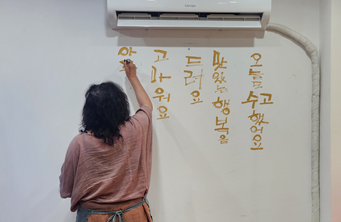 오늘도 수고했어요
맛있는 행복을
드려요
고마워요